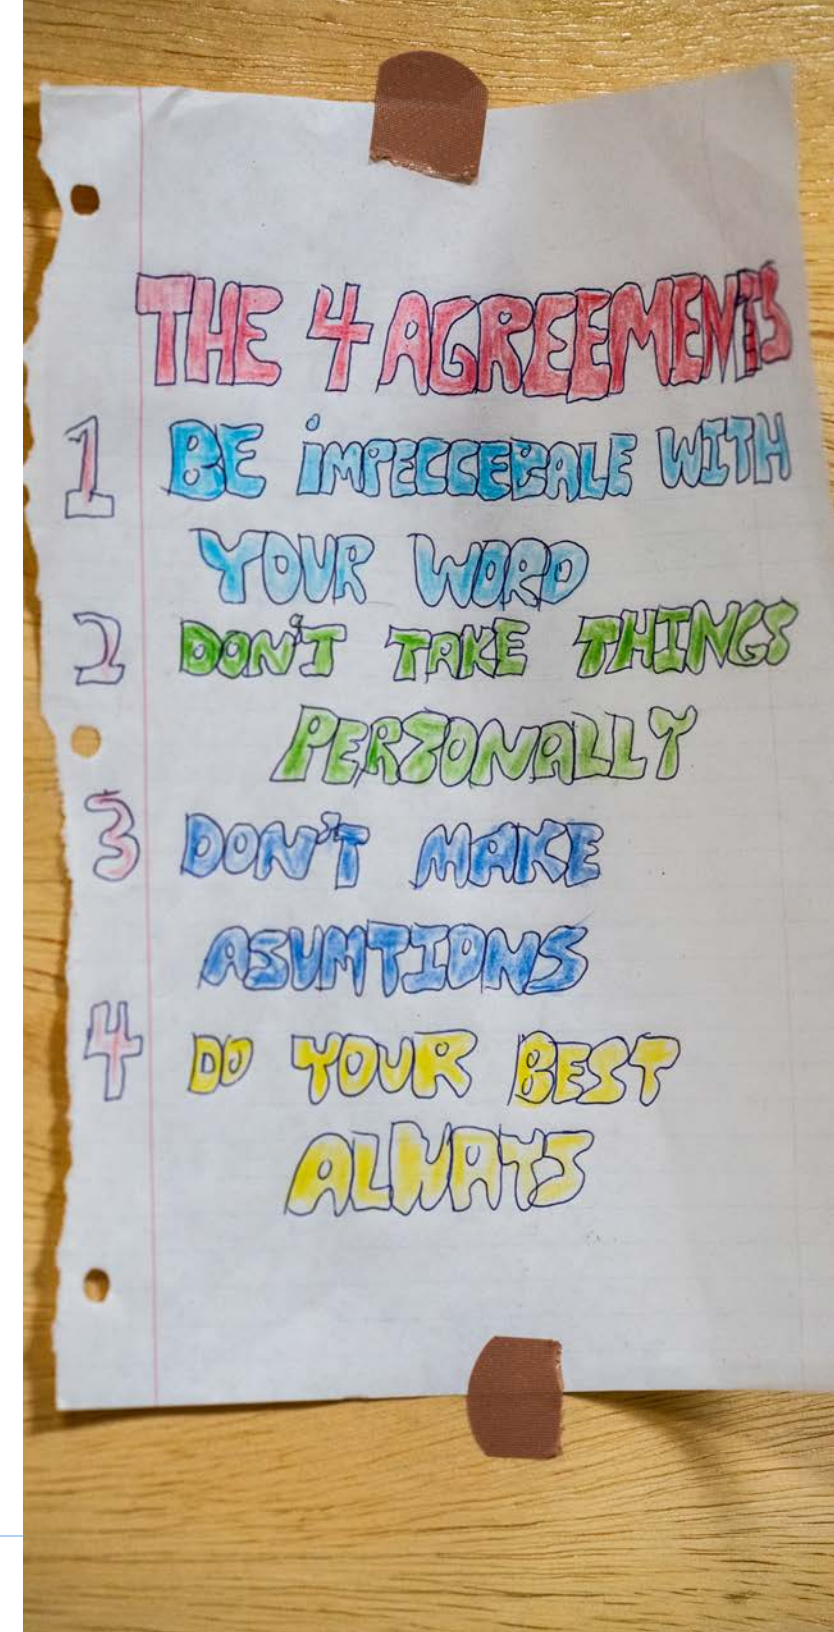 THE 4 AGREEMENTS
1 BE iMPECCEBALE WITH
YOUR WORD
2 DON'T TAKE THINGS
PERSONALLY
3 DON'T MAKE
ASUMTIONS
4 DO YOUR BEST
ALWAYS